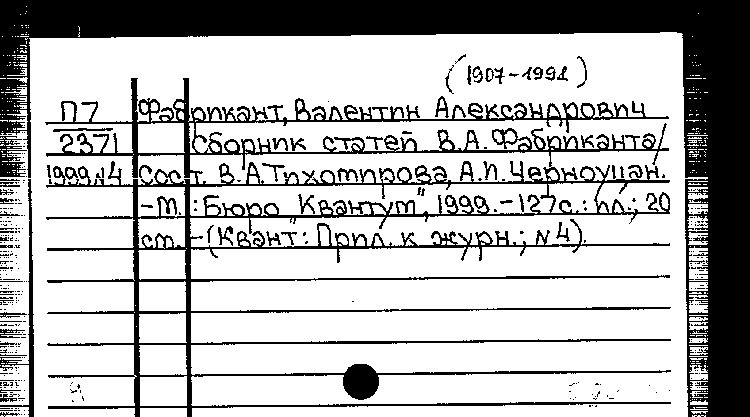 (1907-1991)
П7 Фабрикант, Валентин Александрович
2371 Сборник статей В.А.Фабриканта/
1999.N4 Сост. В.А.Тихомирова, А.И.Черноуцан.
-М.: Бюро "Квантум", 1999.-127с.: ил.; 20
см.-(Квант: Прил. к журн.; N4).